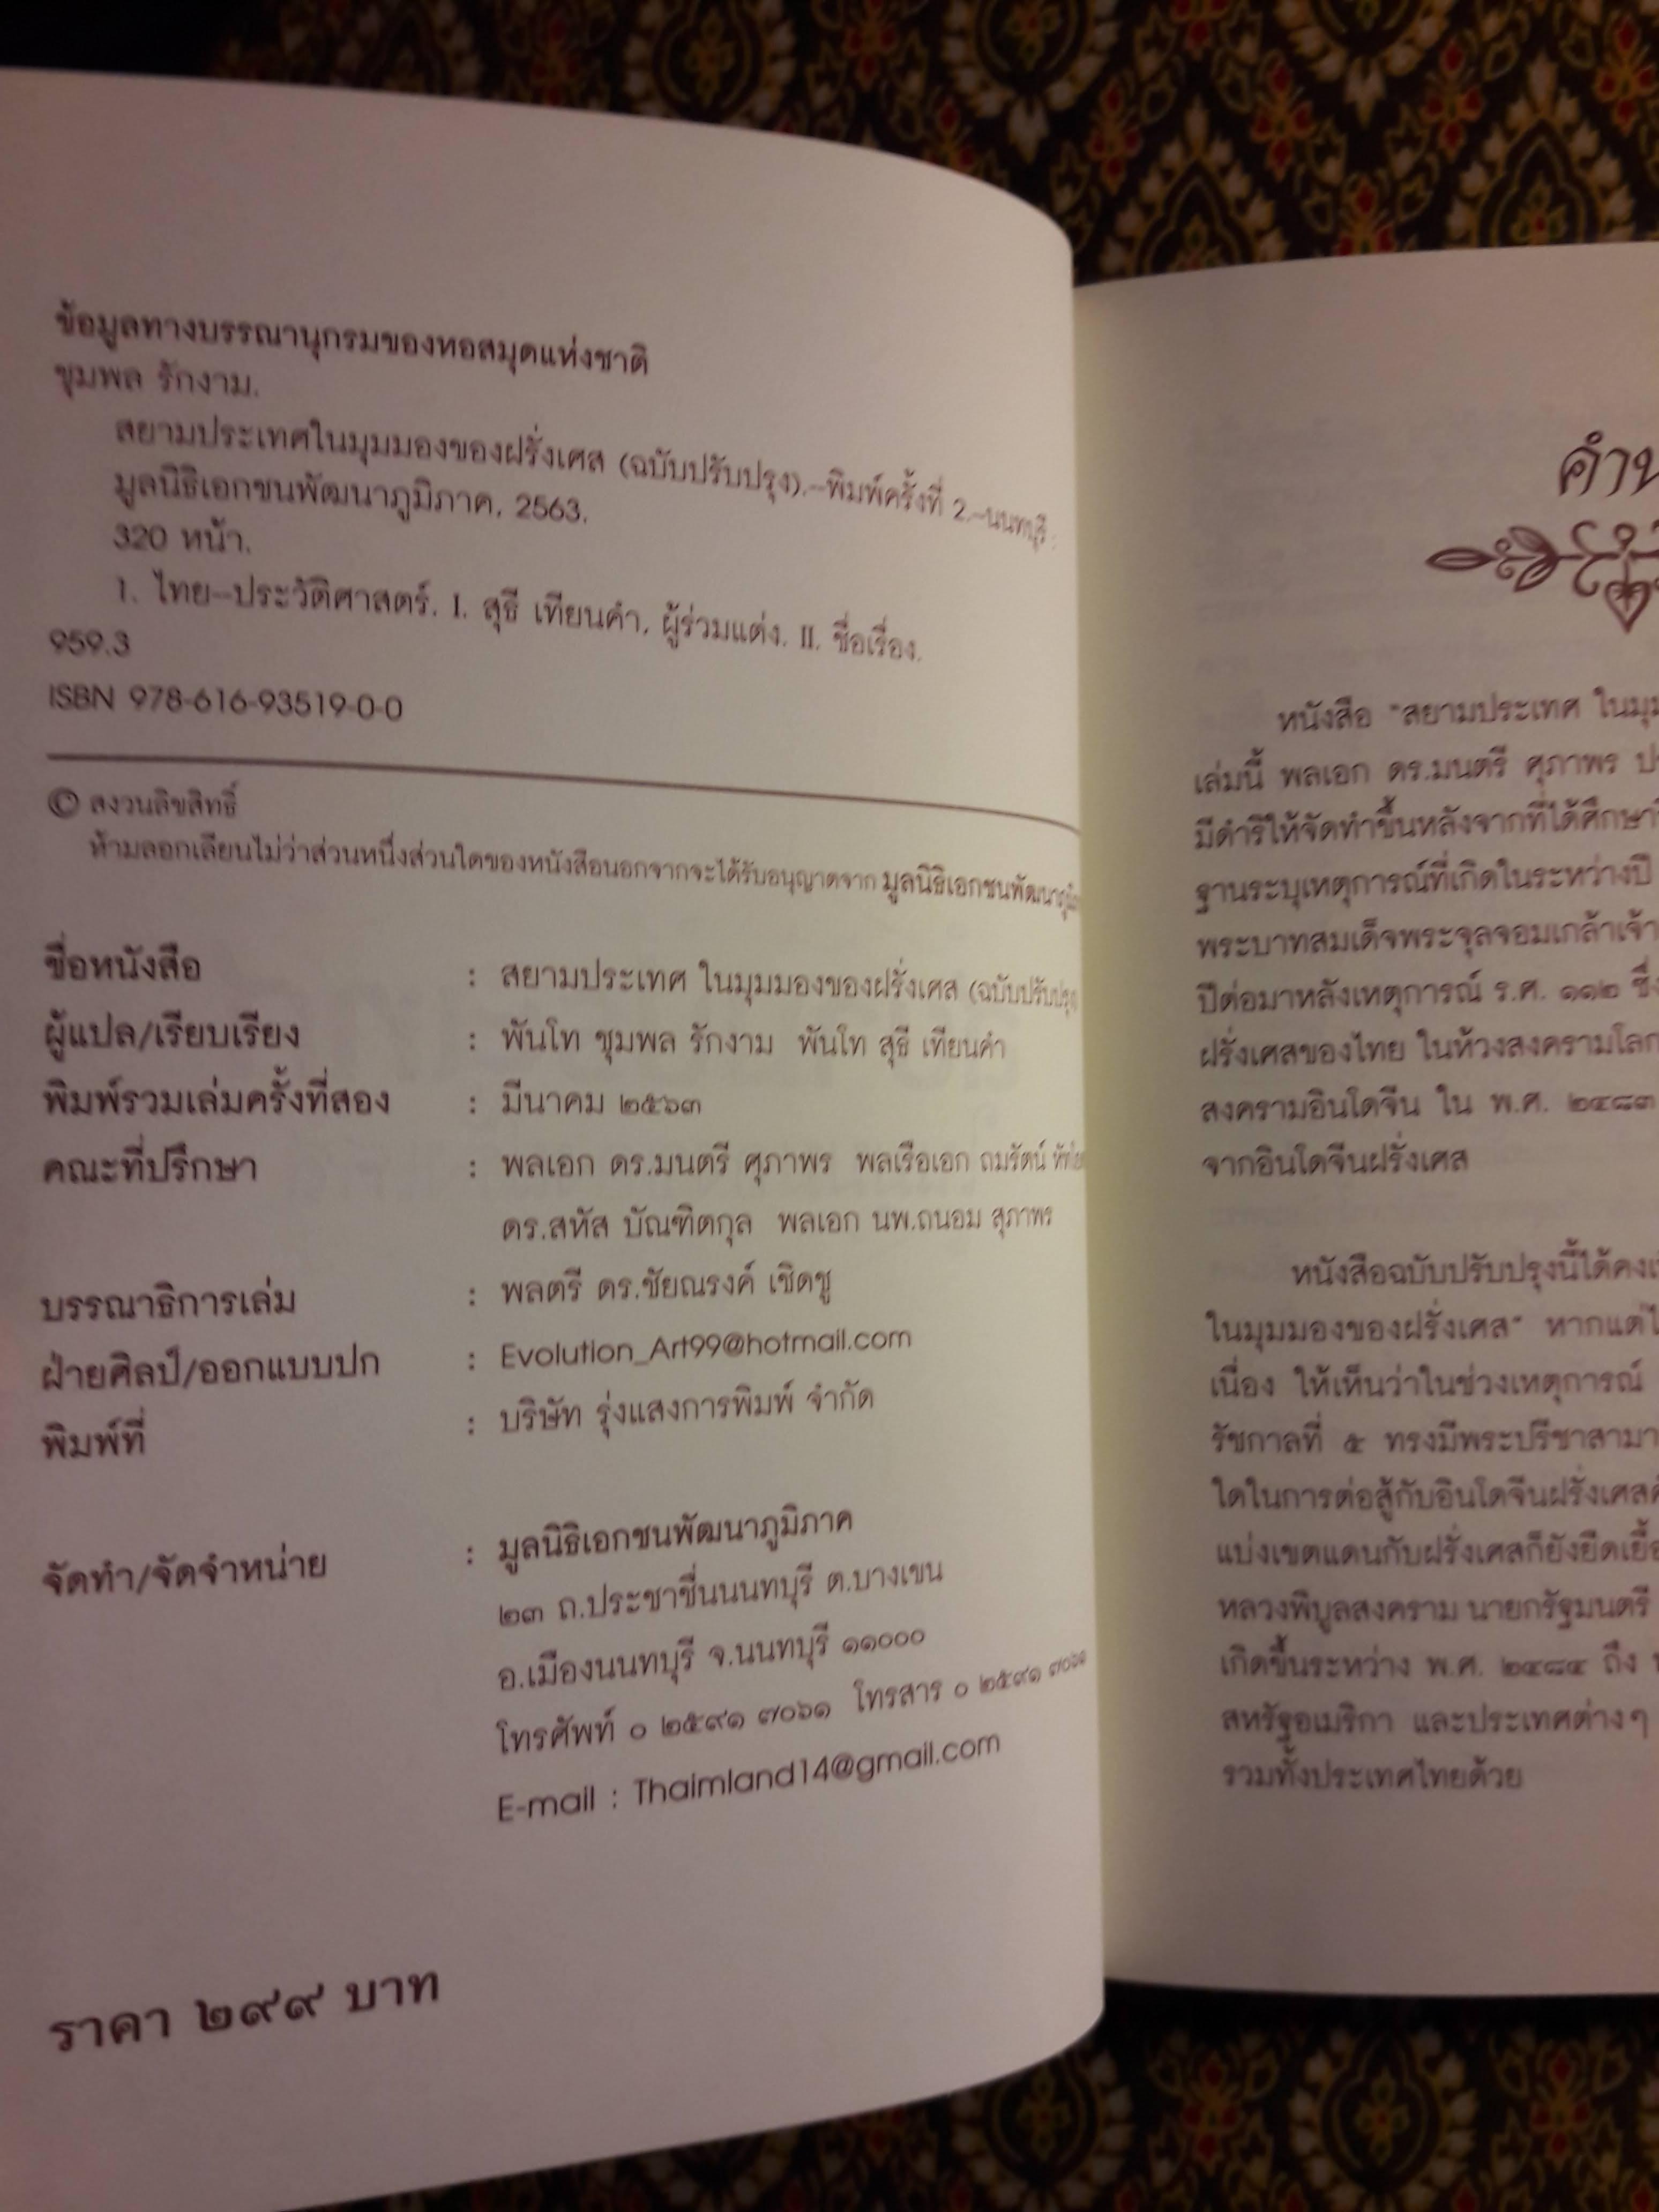 ข้อมูลทางบรรณานุกรมของหอสมุดแห่งชาติ
ชุมพล รักงาม.
สยามประเทศในมุมมองของฝรั่งเศส (ฉบับปรับปรุง).--พิมพ์ครั้งที่ 2.--นนทบุรี :
มูลนิธิเอกชนพัฒนาภูมิภาค, 2563.
320 หน้า.
1. ไทย--ประวัติศาสตร์. I. สุธี เทียนคำ, ผู้ร่วมแต่ง. II. ชื่อเรื่อง.
959.3
ISBN 978-616-93519-0-0
© สงวนลิขสิทธิ์
ห้ามลอกเลียนไม่ว่าส่วนหนึ่งส่วนใดของหนังสือนอกจากจะได้รับอนุญาตจาก มูลนิธิเอกชนพัฒนา
ชื่อหนังสือ : สยามประเทศ ในมุมมองของฝรั่งเศส (ฉบับปรับปรุง)
ผู้แปล/เรียบเรียง : พันโท ชุมพล รักงาม พันโท สุธี เทียนคำ
พิมพ์รวมเล่มครั้งที่สอง : มีนาคม ๒๕๖๓
คณะที่ปรึกษา : พลเอก ดร.มนตรี ศุภาพร พลเรือเอก ถมรัตน์
ดร.สหัส บัณฑิตกุล พลเอก นพ.ถนอม สุภาพร
บรรณาธิการเล่ม : พลตรี ดร.ชัยณรงค์ เชิดชู
ฝ่ายศิลป์/ออกแบบปก : Evolution_Art99@hotmail.com
พิมพ์ที่ : บริษัท รุ่งแสงการพิมพ์ จำกัด
จัดทำ/จัดจำหน่าย : มูลนิธิเอกชนพัฒนาภูมิภาค
๒๓ ถ.ประชาชื่นนนทบุรี ต.บางเขน
อ.เมืองนนทบุรี จ.นนทบุรี ๑๑๐๐๐
โทรศัพท์ ๐ ๒๕๙๑ ๗๐๖๑ โทรสาร ๐ ๒๕๙๑
E-mail : Thaimland14@gmail.com
ราคา ๒๙๙ บาท
หนังสือ "สยามประเทศ
เล่มนี้ พลเอก ดร.มนตรี ศุภาพร
มีดำริให้จัดทำขึ้นหลังจากที่ได้ศึกษา
ฐานระบุเหตุการณ์ที่เกิดในระหว่างปี
พระบาทสมเด็จพระจุลจอมเกล้าเจ้า
ปีต่อมาหลังเหตุการณ์ ร.ศ. ๑๑๒
ฝรั่งเศสของไทย ในห้วงสงครามโลก
สงครามอินโดจีน ใน พ.ศ. ๒๔๘๓
จากอินโดจีนฝรั่งเศส
หนังสือฉบับปรับปรุงนี้ได้คง
ในมุมมองของฝรั่งเศส" หากแต่
เนื่อง ให้เห็นว่าในช่วงเหตุการณ์
รัชกาลที่ ๕ ทรงมีพระปรีชาสามา
ใดในการต่อสู้กับอินโดจีนฝรั่งเศส
แบ่งเขตแดนกับฝรั่งเศสก็ยังยืดเยื้อ
หลวงพิบูลสงคราม นายกรัฐมนตรี
เกิดขึ้นระหว่าง พ.ศ. ๒๔๘๔ ถึง
สหรัฐอเมริกา และประเทศต่างๆ
รวมทั้งประเทศไทยด้วย